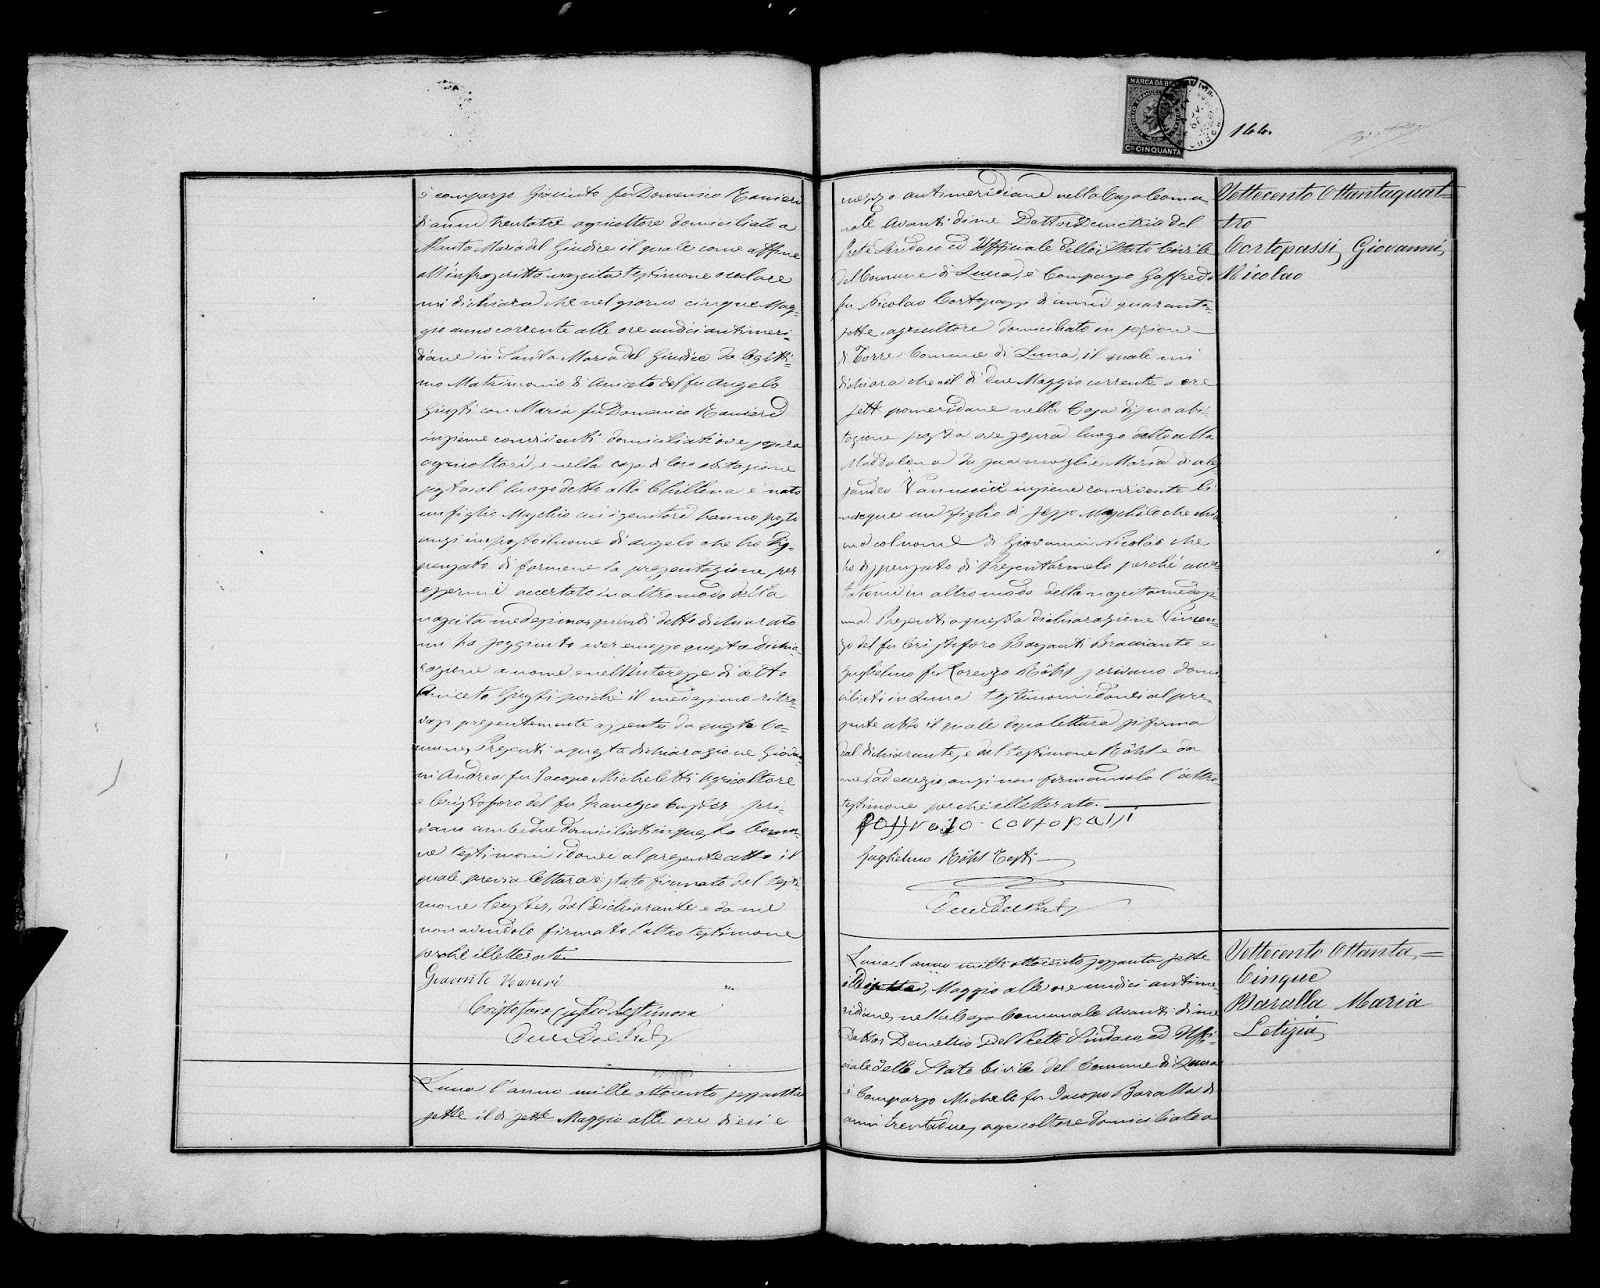 è comparso Giacinto fu Domenico Ranieri
di anni trentatre agricoltore domiciliato a
Santa Maria del Giudice il quale come affine
all'infrascritta nascita testimone oculare
mi dichiara che nel giorno cinque Mag-
gio anno corrente alle ore undici antimeri-
diane in Santa Maria del Giudice da legitti-
mo Matrimonio di Aniceto del fu Angelo
Giusti con Maria fu Domenico Ranieri
insieme conviventi domiciliati ove sopra
agricoltori, e nella casa di loro abitazione
posta al luogo detto alla è nato
un figlio Maschio cui i genitori hanno posto
anzi imposto il nome di Angelo che ho dis-
pensato di farmene la presentazione per
essermi accertato in altro modo della
nascita medesima quindi detto dichiarato
mi ha soggiunto aver emesso questa dichia-
razione a nome e nell'interesse di detto
Aniceto Giusti poiche il medesimo ritro-
vasi presentemente assente da questo Co-
mune, Presenti a questa dichiarazione Giovan-
ni Andrea fu Jacopo Micheletti Agricoltore
e Cristoforo del fu Francesco Custer
ambedue domiciliati in questo Comu-
ne testimoni idonei al presente atto il
quale previa lettura è stato firmato dal testi-
mone Custer, dal dichiarante e da me
non avendolo firmato l'altro testimone
perché illetterato
Giacinto Ranieri
Cristoforo Custer Testimone
Lucca l'anno mille ottocento sessanta
sette il dì sette Maggio alle ore dieci e
MARCA DA BOLLO
Ci. CINQUANTA
144.
mezzo antimeridiane nella Casa Comu-
nale Avanti di me Dottor Demetrio Del
Prete Sindaco ed Uffiziale dello Stato Civile
del Comune di Lucca, è Comparso Goffredo
fu Nicolao Cortopassi di anni quaranta-
sette, agricoltore domiciliato in sezione
di Torre Comune di Lucca, il quale mi
dichiara che nel dì due Maggio corrente a ore
sette pomeridiane nella Casa di sua abi-
tazione posta ove sopra luogo detto alla
Maddalena da sua moglie Maria di Ales-
sandro Vannucci insieme convivente
nacque un figlio di sesso Maschile che
col nome di Giovanni Nicolao che
ho dispensato di Presentarmelo perché accer-
tatomi in altro modo della nascita medesi-
ma Presenti a questa dichiarazione Vincen-
zo del fu Cristoforo Barsanti Bracciante e
Guglielmo fu Lorenzo Röhs scrivano domi
ciliati in Lucca testimoni idonei al pre-
sente atto il quale dopo lettura si firma
dal dichiarante, e dal testimone Röhs e da
me anzi non firmandolo l'altro
testimone perché illetterato.
goffredo cortopassi
Guglielmo Röhs Testi
Settecento Ottantaquat-
tro
Cortopassi Giovanni
Nicolao
Lucca l'anno mille ottocento sessanta sette
il dì sette, Maggio alle ore undici antime-
ridiane, nella Casa Comunale Avanti di me
Dottor Demetrio Del Prete Sindaco ed Uffi-
ziale dello Stato Civile del Comune di Lucca
è Comparso Michele fu Jacopo Baralla di
anni trentadue, agricoltore domiciliato a
Settecento Ottanta
Cinque
Baralla Maria
Letizia